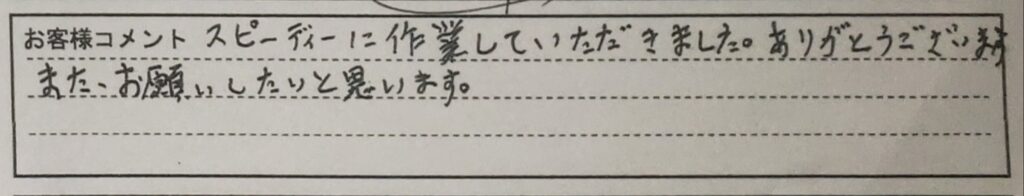 お客様コメント スピーディーに作業していただきました。ありがとうございます
また、お願いしたいと思います。